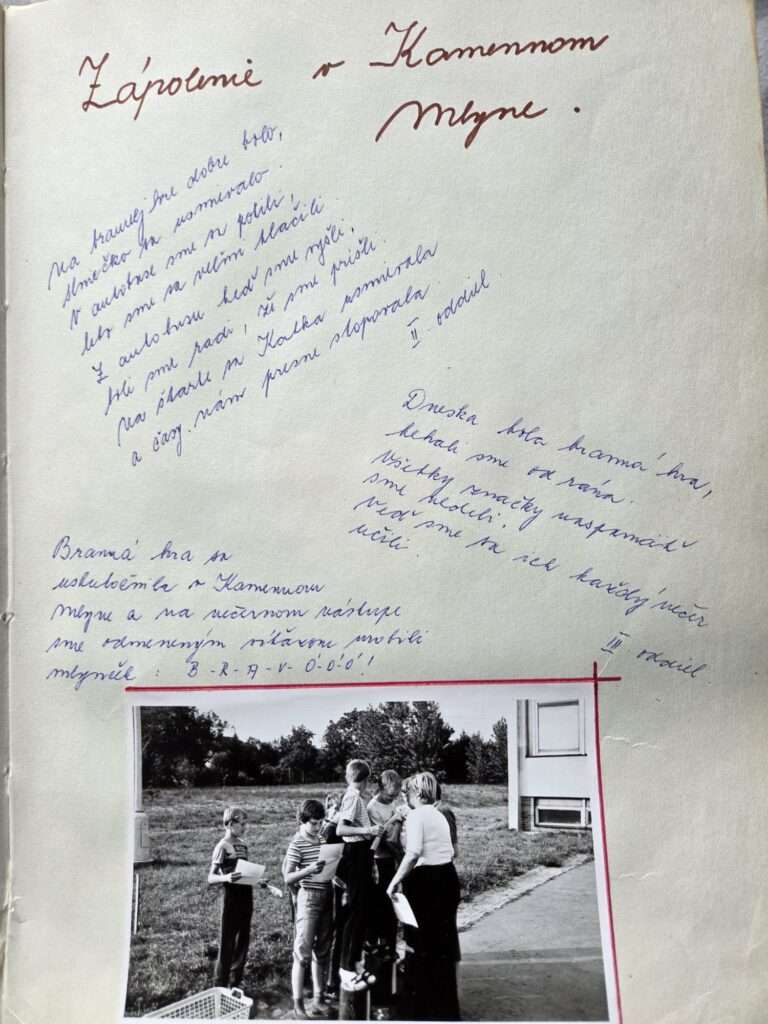 Zápolenie v Kamennom
Mlyne.
Na brannej hre dobre bolo,
slniečko sa usmievalo.
V autobuse sme sa potili,
lebo sme sa veľmi tlačili
Z autobusu keď sme vyšli,
boli sme radi, že sme prišli.
Na štarte sa Katka usmievala
a časy nám presne stopovala.
II. oddiel
Dneska bola branná hra,
behali sme od rána.
Všetky značky naspamäť
sme vedeli,
veď sme sa ich každý večer
učili.
III oddiel
Branná hra sa
uskutočnila v Kamennom
Mlyne a na večernom nástupe
sme odmeneným víťazom urobili
mlynček: B-R-A-V-Ó-Ó-Ó!